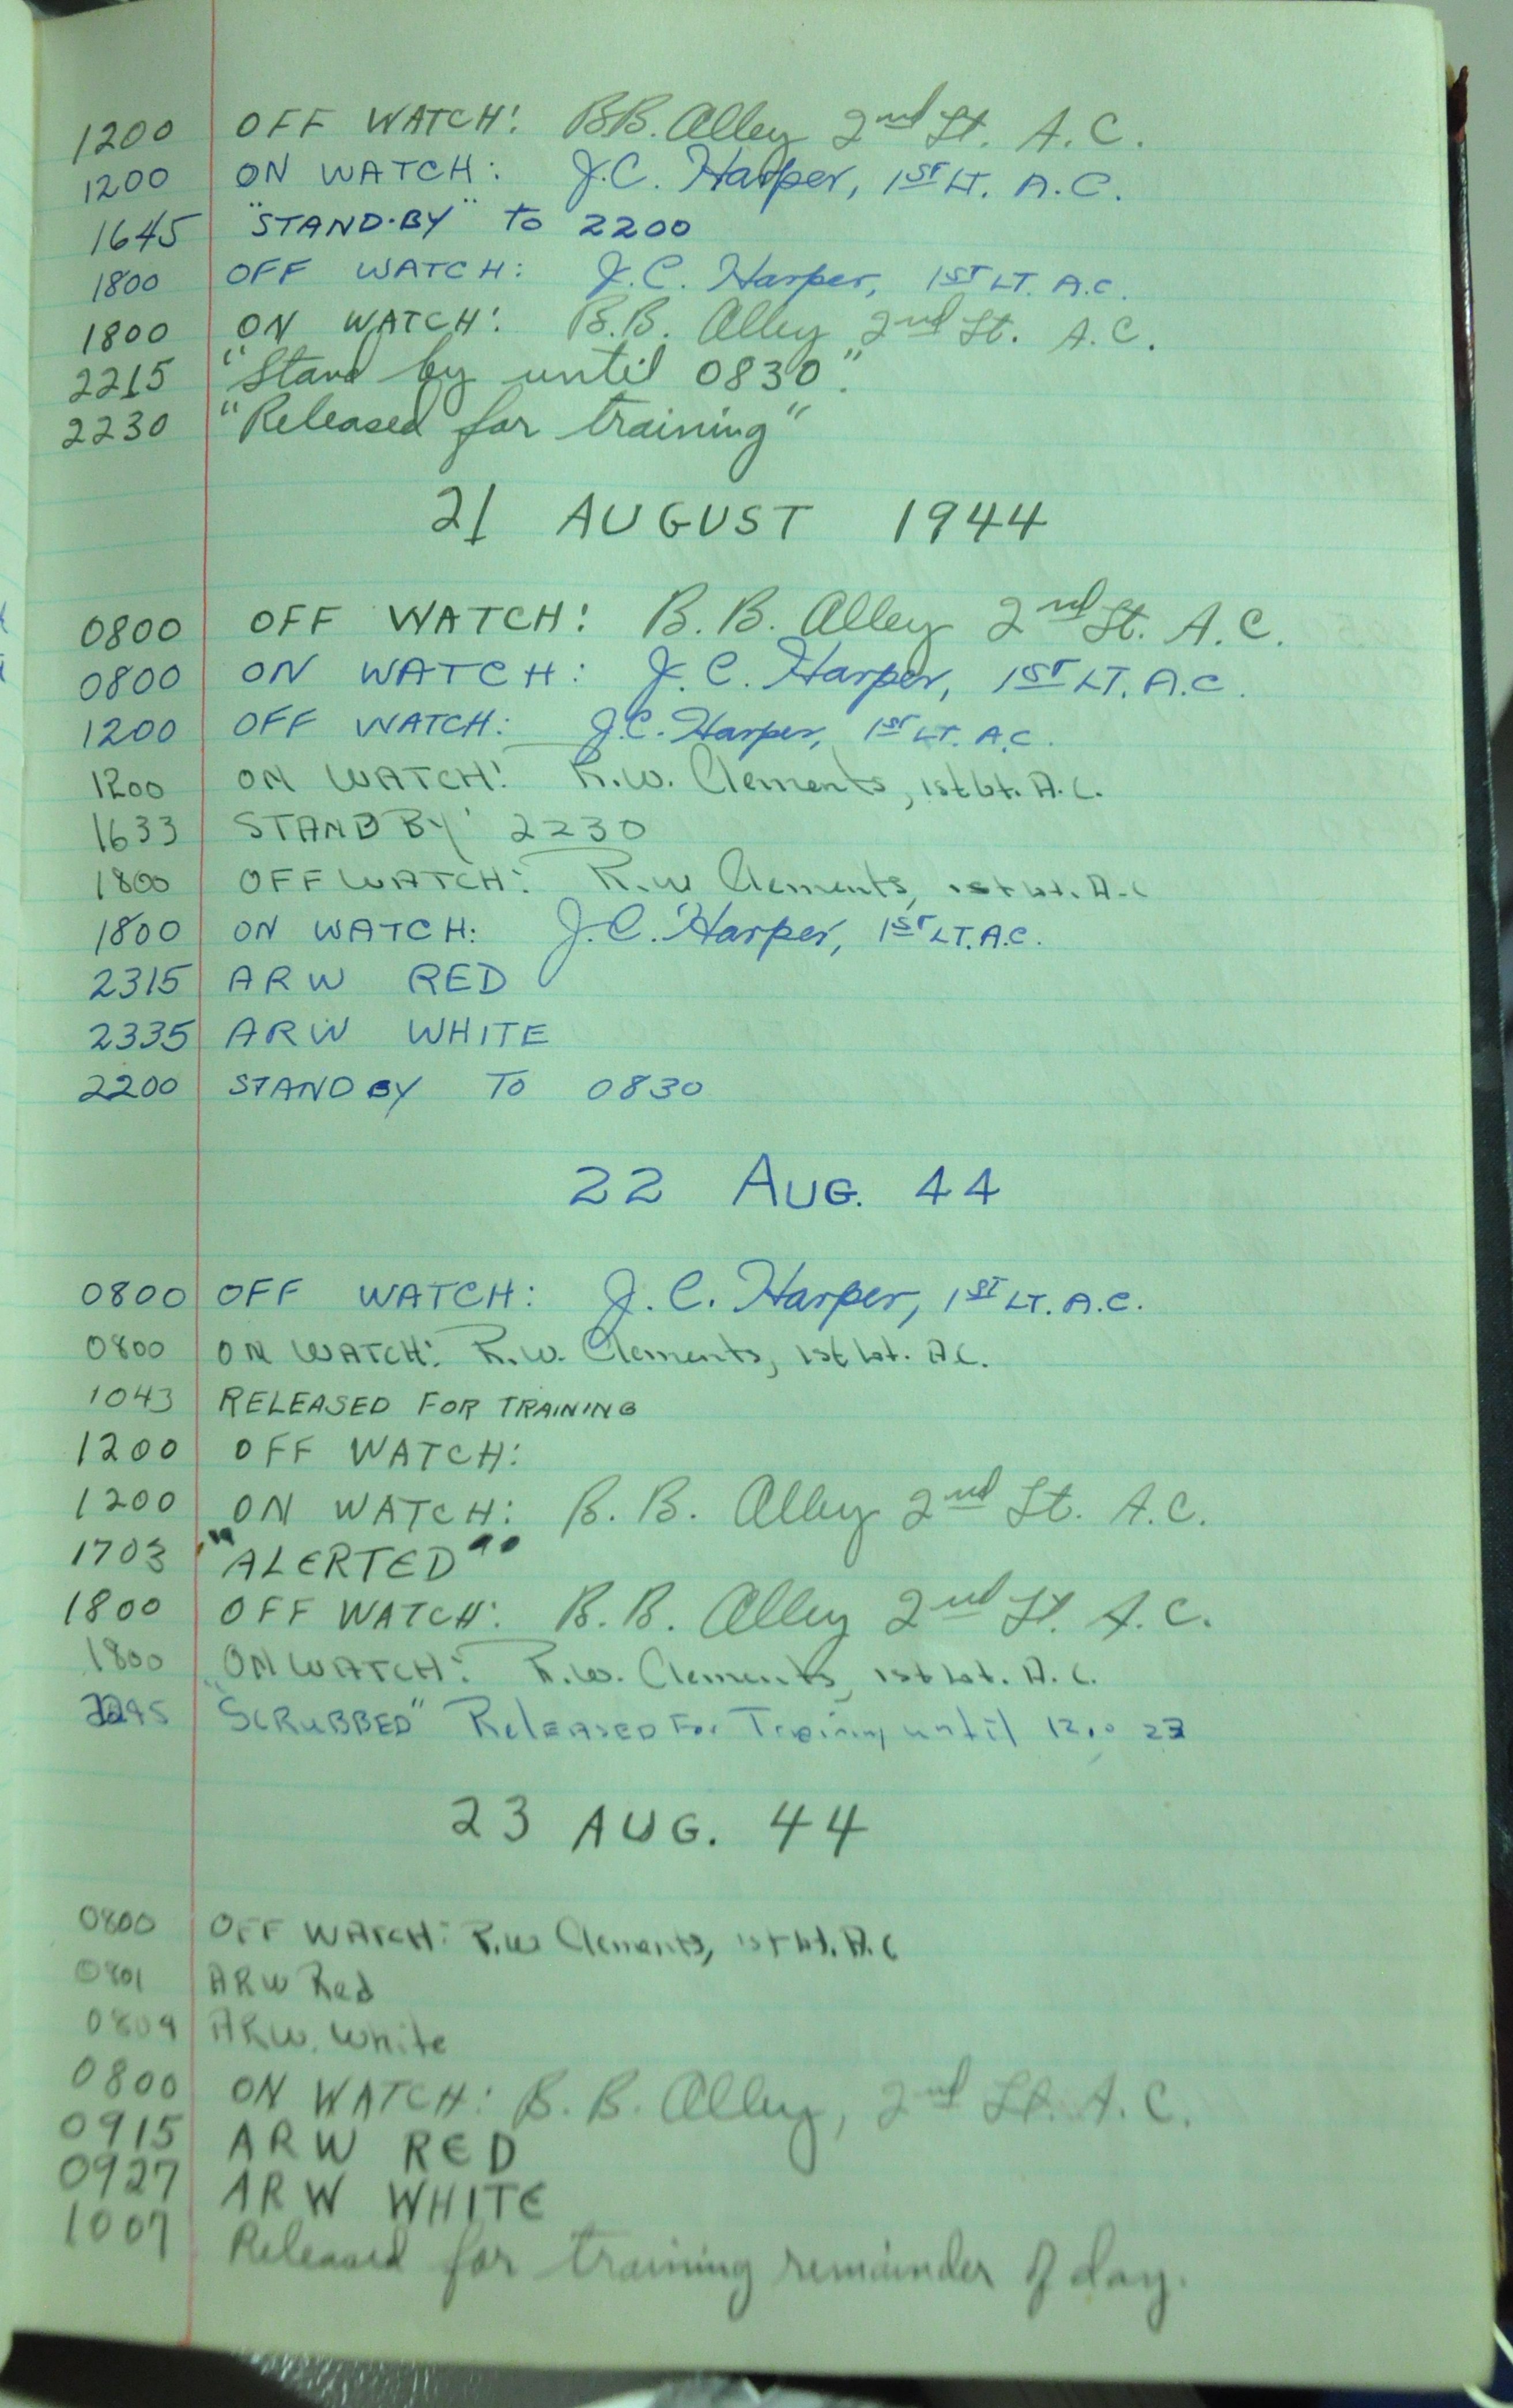 1200 OFF WATCH: B.B. Alley 2nd Lt. A.C.
1200 ON WATCH: J.C. Harper, 1ST LT. A.C.
1645 "STAND-BY" to 2200
1800 OFF WATCH: J.C. Harper, 1ST LT. A.C.
1800 ON WATCH: B.B. Alley 2nd Lt. A.C.
2215 "Stand by until 0830".
2230 "Released for training"
21 AUGUST 1944
0800 OFF WATCH: B.B. Alley 2nd Lt. A.C.
0800 ON WATCH: J.C. Harper, 1ST LT. A.C.
1200 OFF WATCH: J.C. Harper, 1ST LT. A.C.
1200 ON WATCH: R.W. Clements, 1st Lt. A.C.
1633 STAND BY 2230
1800 OFF WATCH: R.W Clements, 1st Lt. A.C
1800 ON WATCH: J.C. Harper, 1ST LT. A.C.
2315 ARW RED
2335 ARW WHITE
2200 STAND BY TO 0830
22 AUG. 44
0800 OFF WATCH: J.C. Harper, 1ST LT. A.C.
0800 ON WATCH: R.W. Clements, 1st Lt. A.C.
1043 RELEASED FOR TRAINING
1200 OFF WATCH:
1200 ON WATCH: B.B. Alley 2nd Lt. A.C.
1703 "ALERTED"
1800 OFF WATCH: B.B. Alley 2nd Lt. A.C.
1800 ON WATCH: R.W. Clements, 1st Lt. A.C.
"SCRUBBED" Released For Training until 1200 23
23 AUG. 44
0800 OFF WATCH: R.W Clements, 1st Lt. A.C
0801 ARW Red
0809 ARW. White
0800 ON WATCH: B.B. Alley, 2nd Lt. A.C.
0915 ARW RED
0927 ARW WHITE
1007 Released for training remainder of day.